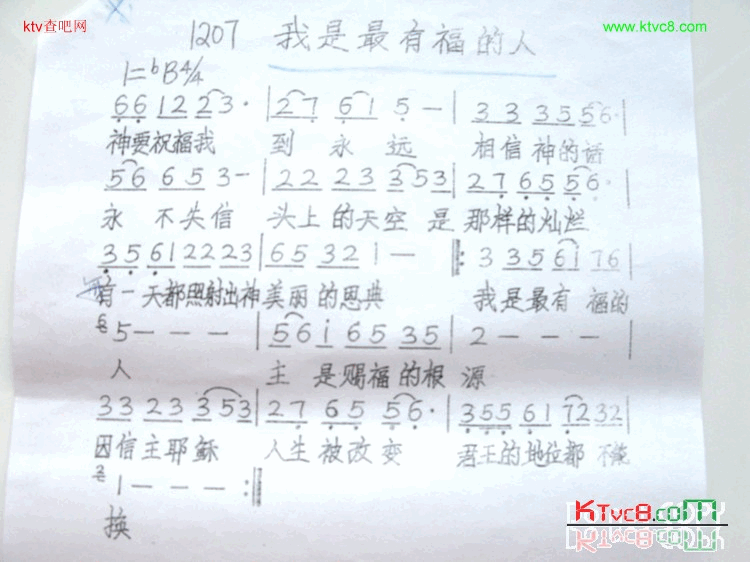 ktv查吧网
www.ktvc8.com
1207 我是最有福的人
1=♭B 4/4
6 6 1 2 2 3· | 2 7 6 1 5 — | 3 3 3 5 5 6· |
神要祝福我 到永远 相信神的话
5 6 6 5 3 — | 2 2 2 3 3 5 3 | 2 7 6 5 5 6· |
永不失信 头上的天空是那样的灿烂
3 5 6 1 2 2 2 3 | 6 5 3 2 1 — ‖: 3 3 5 6 1 7 6 |
有一天都照射出神美丽的恩典 我是最有福的
5 — — — | 5 6 i 6 5 3 5 | 2 — — — |
人 主是赐福的根源
3 3 2 3 3 5 3 | 2 7 6 5 5 6· | 3 5 5 6 1 7 2 3 2 |
因信主耶稣 人生被改变 君王的地位都不能
1 — — — :‖
换
KTvc8.com